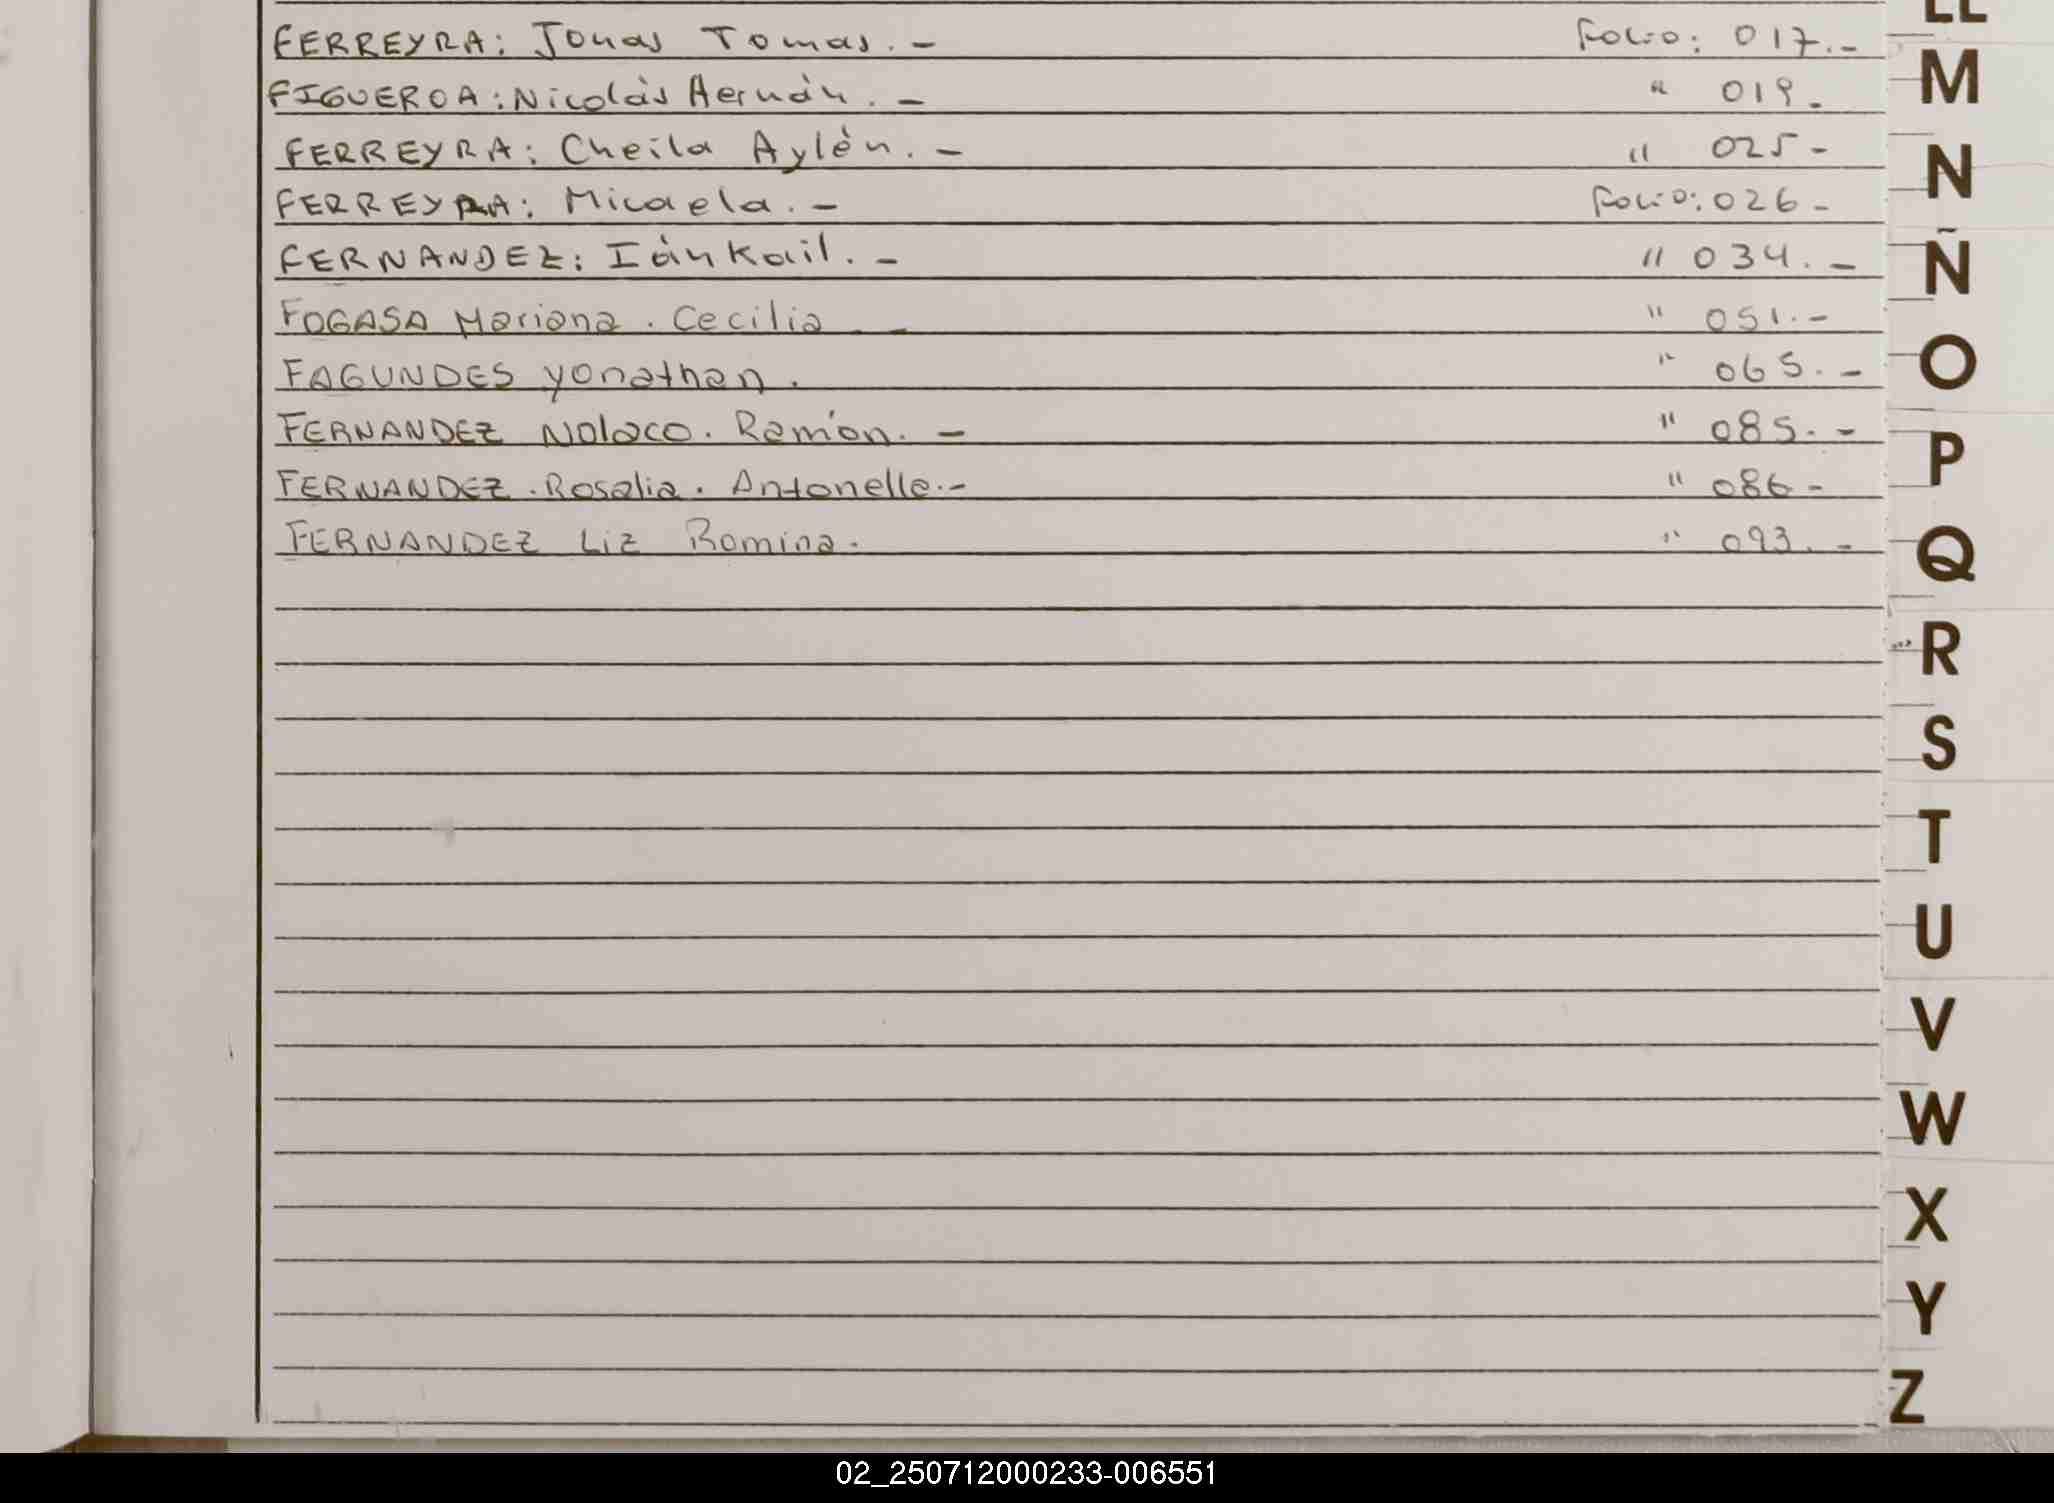 FERREYRA: Jonas Tomas. - Folio: 017.-
FIGUEROA: Nicolás Hernán. - " 019.
FERREYRA: Cheila Aylén. - " 025-
FERREYRA: Micaela. - Folio: 026-
FERNANDEZ: Ián Kail. - " 034. -
FOGASA Mariana. Cecilia. - " 051.-
FAGUNDES Yonathan. " 065. -
FERNANDEZ Nolaco. Ramón. - " 085. -
FERNANDEZ. Rosalia. Antonella.- " 086-
FERNANDEZ Liz Romina. " 093. -
LL
M
N
Ñ
O
P
Q
R
S
T
U
V
W
X
Y
Z
02_250712000233-006551